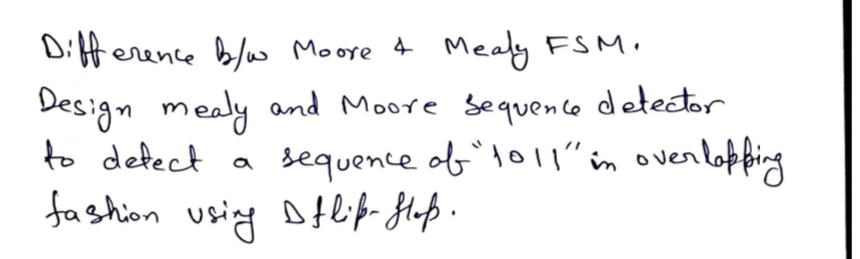 Difference b/w Moore & Mealy FSM.
Design mealy and Moore sequence detector
to detect a sequence of "1011" in overlapping
fashion using D flip-flop.